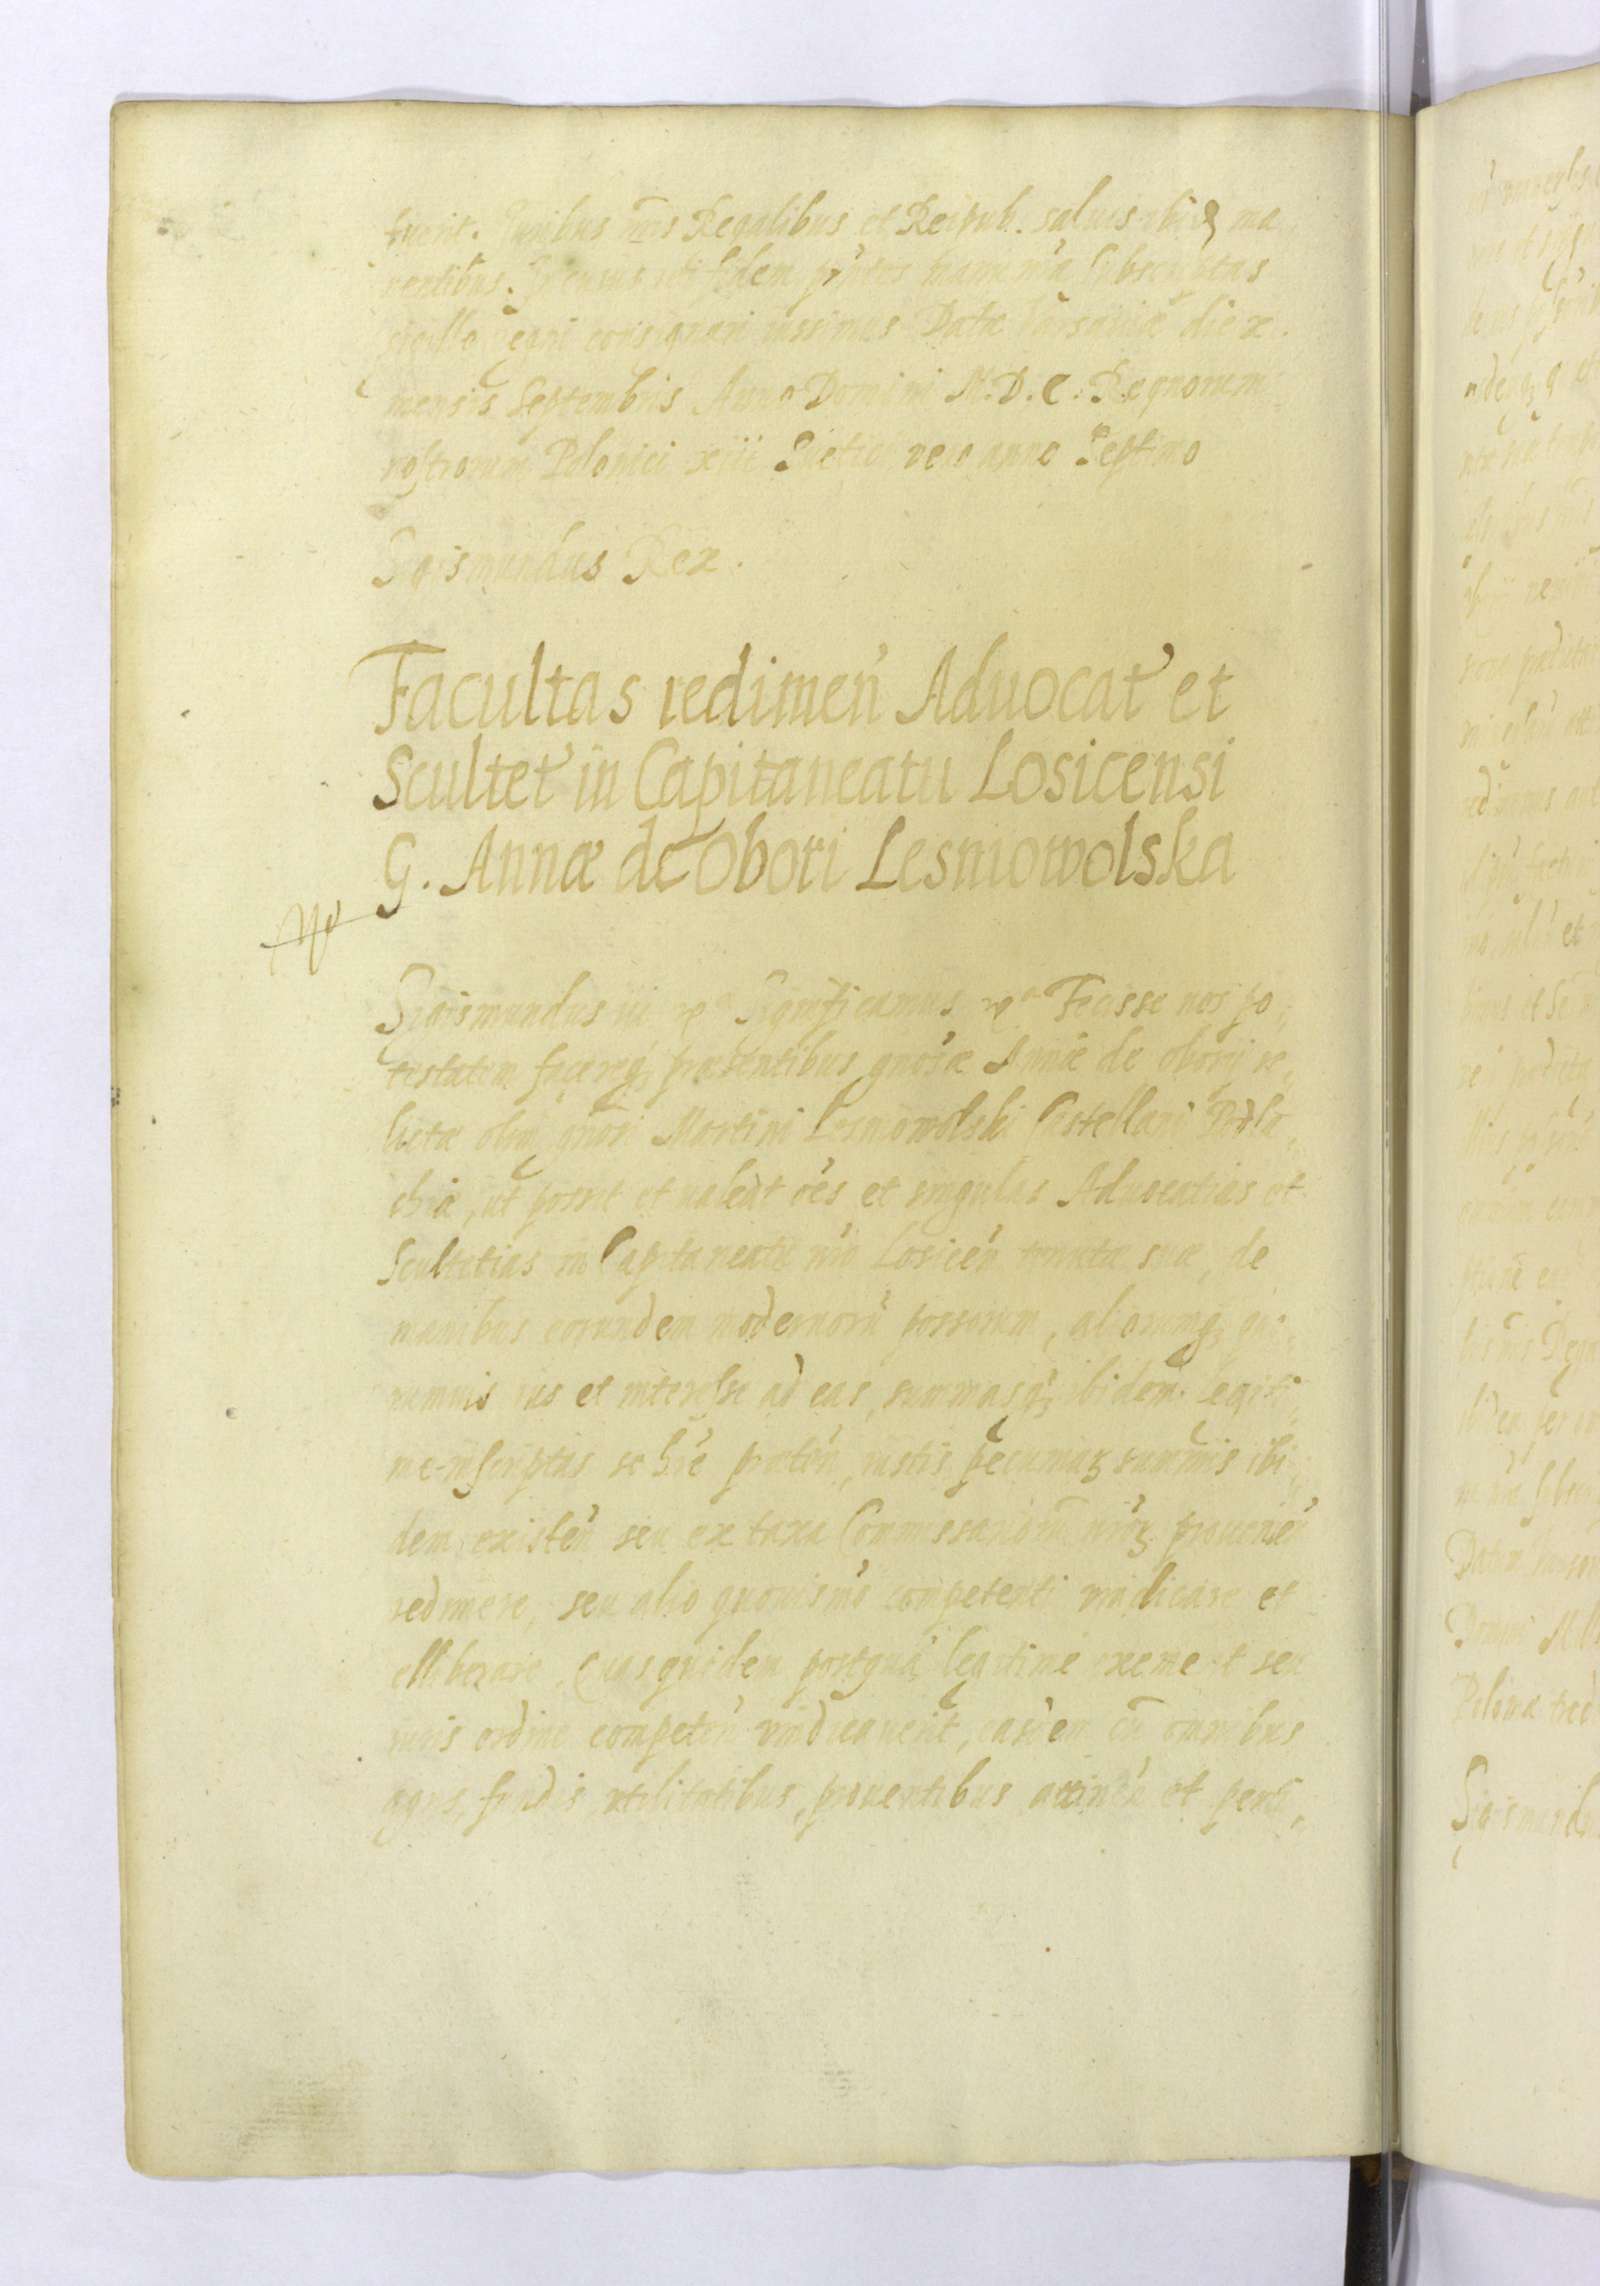 fuerit. Iuribus nr̃is Regalibus et Reipub. saluis ibidẽ ma,
nentibus. In cuius rei fidem pñtes manu nr̃a subscriptas
sigillo Regni consignari iussimus Datæ Varsauiæ die x.
mensis Septembris Anno Domini M.D.C. Regnorum
nostrorum Polonici xiii Suetici vero anno Septimo
Sigismundus Rex.
Facultas redimen̾ Aduocat̾ et
Scultet̾ in Capitaneatu Losicensi
G. Annæ de Obori Lesniowolska
Sigismundus iii Significamus Fecisse nos po,
testatem facereq; præsentibus gnosæ Annæ de obory re,
lictæ olim gnosi Martini Lesniowolski Castellani Podla,
chiæ, ut possit et valeat oẽs et singulas Aduocatias et
Scultetias in Capitaneatu nr̃o Losicen̾ tenutæ suæ, de
manibus eorundem modernorũ possorum, aliorumq; quo,
rumuis ius et interesse ad eas, summasq; ibidem legiti,
me inscriptas se hr̃e præten̾, iustis pecuniaꝝ summis ibi,
dem existen̾ seu ex taxa Commissariorũ nr̃oꝝ prouenien̾
redimere, seu alio quouismõ competenti vindicare et
elliberare. Quasquidem postquã legitime exemerit seu
iuris ordine competen̾ vindicauerit, easdem cũ omnibus
agris, fundis, vtilitatibus, prouentibus attinen̾ et perti,